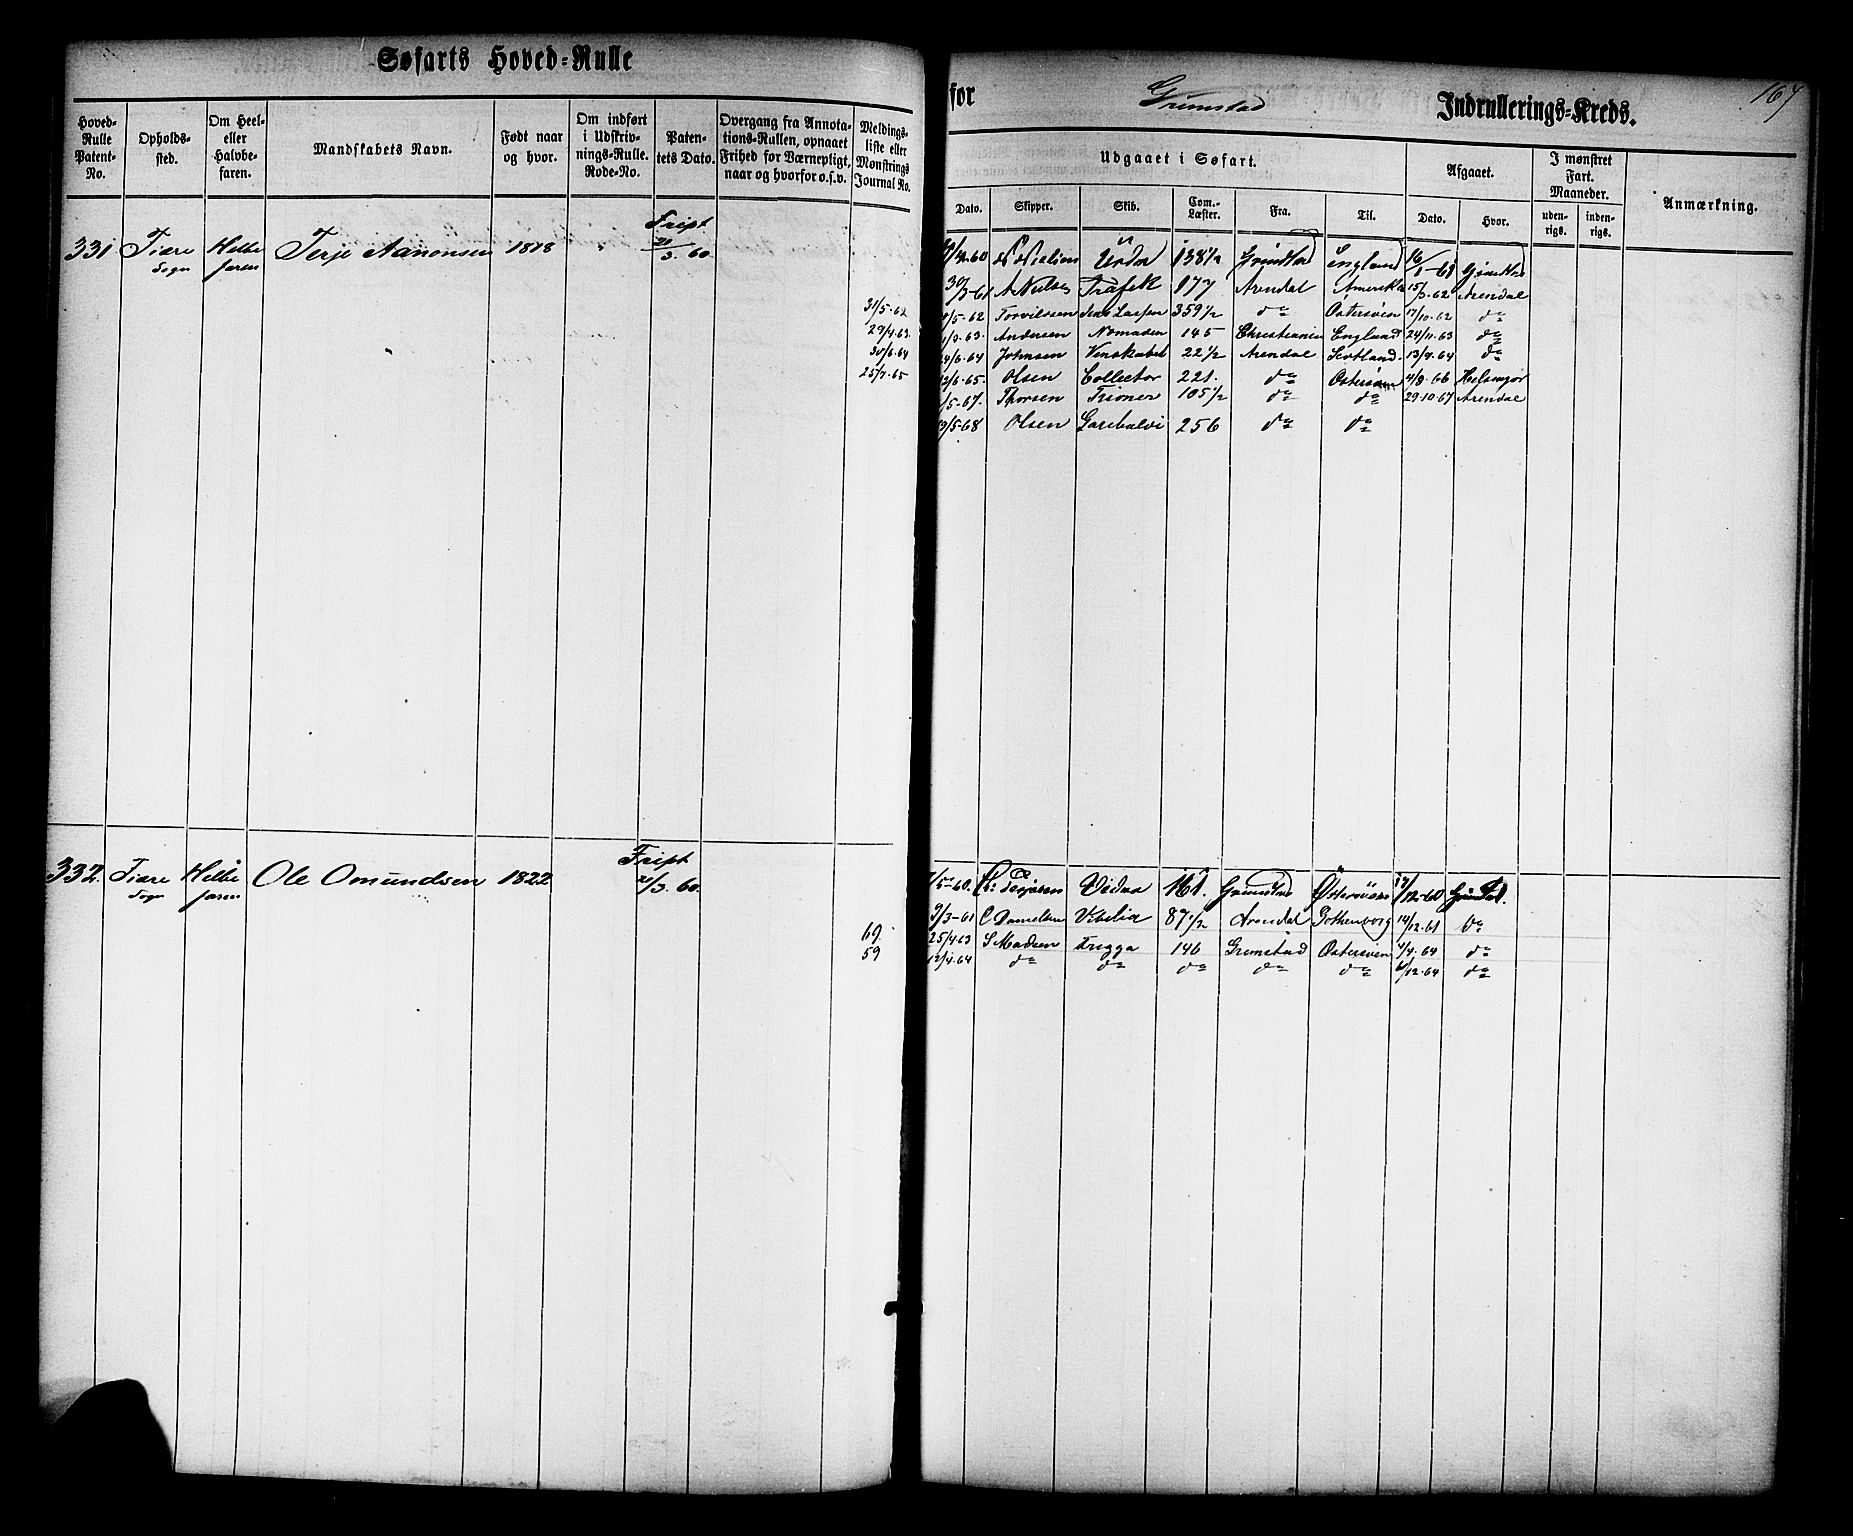 Søfarts Hoved-Rulle
for Grimstad Indrullerings-Kreds.
167
Hoved-Rulle Patent-No.
Opholds-sted.
Om Heel- eller Halvbe-faren.
Mandskabets Navn.
Født naar og hvor.
Om indført i Udskriv-nings-Rulle. Rode-No.
Paten-tets Dato.
Overgang fra Annota-tions-Rullen, opnaaet Frihed for Værnepligt, naar og hvorfor o.s.v.
Meldings-liste eller Mønstrings Journal No.
Udgaaet i Søfart.
Dato. Skipper. Skib. Com.-Læster. Fra. Til.
Afgaaet.
Dato. Hvor.
I mønstret Fart. Maaneder.
uden-rigs. inden-rigs.
Anmærkning.
331 Fiære Sogn Helbefaren Terje Aanonsen 1818 Fript 21/3. 60.
60 Nielsen Urda 138½ Grimstad England 16/1-61 Grimstad
30/3-61 A Nielsen Trafik 177 Arendal Amerika 15/3.62 Arendal
31/5-62 /5-62 359½ do Østersøen 17/10-62 do
29/4.63. 63. Andersen Nomaden 145 Christiania England 24/11.63 do
30/6.64 /6-64 Johnsen Venskabet 22½ Arendal Scotland. 13/7.64 do
25/7.65 12/6-65. Olsen Collector 221. do Østersøen 4/8.66 Helsingør
/5-67. Thorsen 105½ do do 29.10.67 Arendal
/5-68 Olsen Garibaldi 256 do do
332. Fiære Sogn Helbefaren Ole Omundsen 1822 Fript 21/3. 60.
/5-60. Terjesen Vidar 161. Grimstad Østersøen 17/12-60 Grimstad.
9/3-61 C Danielsen 87½ Arendal Gothenborg 14/12.61 do
69 25/4.63 S Madsen Frigga 146 Grimstad Østersøen 4/4.64 do
59 12/4.64 do do do do do /12.64 do